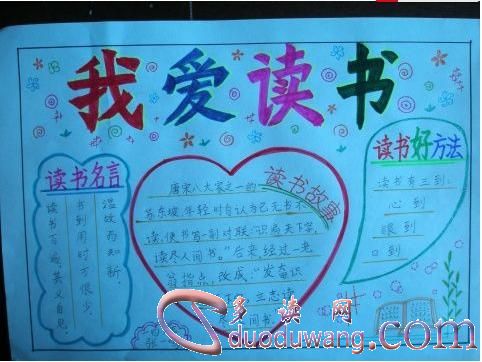 我爱读书
读书名言
温故而知新,
书到用时方恨少,
读书百遍,其义自见。
读书故事
唐宋八大家之一的
苏东坡,年轻时自认为已无书不
读,便书写一副对联:"识遍天下字,
读尽人间书。"后来,经过一老
翁指点,改成:"发奋识
立志读
间书
读书好方法
读书有三到:
心到
眼到
口到
张一
多读网
duoduwang.com